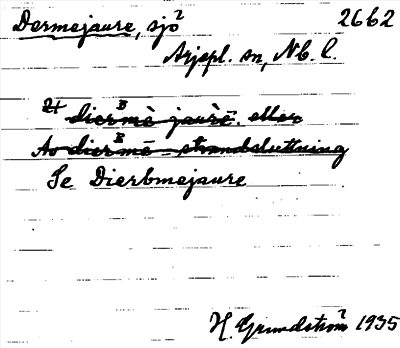 Dermejaure, sjö 2662
Arjepl. sn, Nb. l.
diermè jaurè. eller
Av diermē - strandsluttning
Se Dierbmejaure
H. Grundström 1935